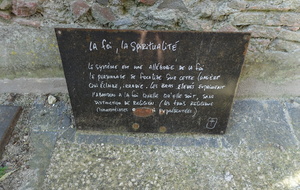 La foi, La Spiritualité
Le système est une allégorie de la foi
le personnage se focalise sur cette lumière
qui éclaire, irradie. Les bras élevés expriment
l'abandon à la foi quelle qu'elle soit, sans
distinction de religion (les trois religions
représentées).